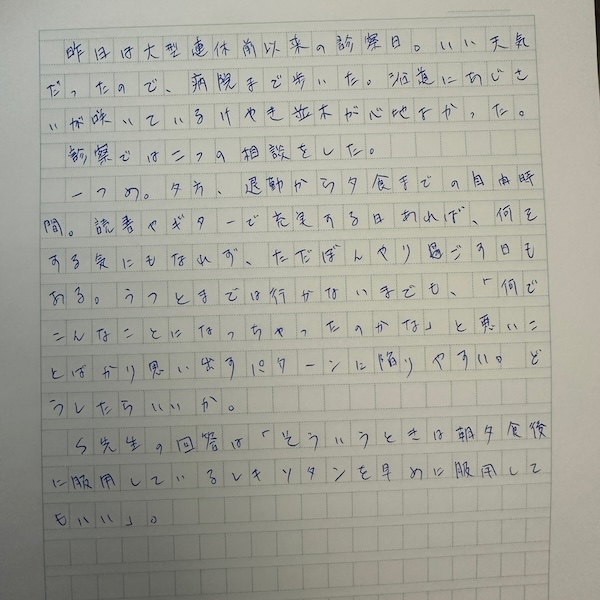 昨日は大型連休前以来の診察日。いい天気
だったので、病院まで歩いた。沿道にあじさ
いが咲いているけやき並木が心地よかった。
診察では二つの相談をした。
一つめ。夕方、退勤から夕食までの自由時
間。読書やギターで充実する日あれば、何を
する気にもなれず、ただぼんやり過ごす日も
ある。うつとまでは行かないまでも、「何で
こんなことになっちゃったのかな」と悪いこ
とばかり思い出すパターンに陥りやすい。ど
うしたらいいか。
S先生の回答は「そういうときは朝夕食後
に服用しているレキソタンを早めに服用して
もいい」。